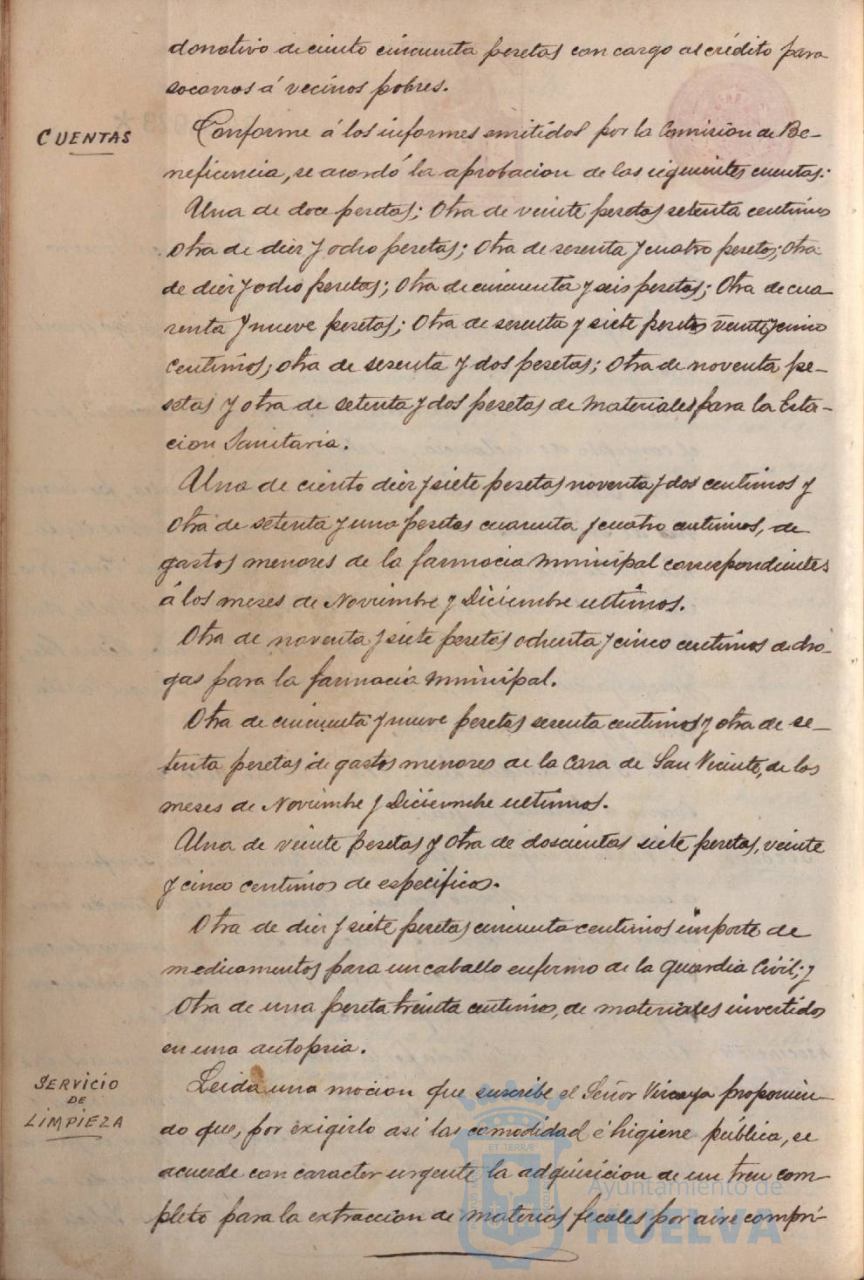 donativo de ciento cincuenta pesetas con cargo al crédito para
socorros á vecinos pobres.
CUENTAS
Conforme á los informes emitidos por la Comision de Be-
neficencia, se acordó la aprobacion de las siguientes cuentas:
Una de doce pesetas; Otra de veinte pesetas setenta centimos
Otra de diez y ocho pesetas; Otra de sesenta y cuatro pesetas; Otra
de diez y ocho pesetas; Otra de cincuenta y seis pesetas; Otra de cua
renta y nueve pesetas; Otra de sesenta y siete pesetas veinte y cinco
centimos; otra de sesenta y dos pesetas; Otra de noventa pe-
setas y otra de setenta y dos pesetas de materiales para la Esta-
cion Sanitaria.
Una de ciento diez y siete pesetas noventa y dos centimos y
Otra de setenta y una pesetas cuarenta y cuatro centimos, de
gastos menores de la farmacia municipal correspondientes
á los meses de Noviembre y Diciembre ultimos.
Otra de noventa y siete pesetas ochenta y cinco centimos de dro-
gas para la farmacia municipal.
Otra de cincuenta y nueve pesetas sesenta centimos y otra de se-
tenta pesetas de gastos menores de la Casa de San Vicente, de los
meses de Noviembre y Diciembre ultimos.
Una de veinte pesetas y Otra de doscientas siete pesetas, veinte
y cinco centimos de especificos.
Otra de diez y siete pesetas cincuenta centimos importe de
medicamentos para un caballo enfermo de la Guardia Civil; y
Otra de una peseta treinta centimos, de materiales invertidos
en una autopsia.
SERVICIO
DE
LIMPIEZA
Leida una mocion que suscribe el Señor Vizcaya proponien-
do que, por exigirlo asi las comodidad é higiene pública, se
acuerde con caracter urgente la adquisicion de un tren com-
pleto para la extraccion de materias fecales por aire compri-
Ayuntamiento de
HUELVA